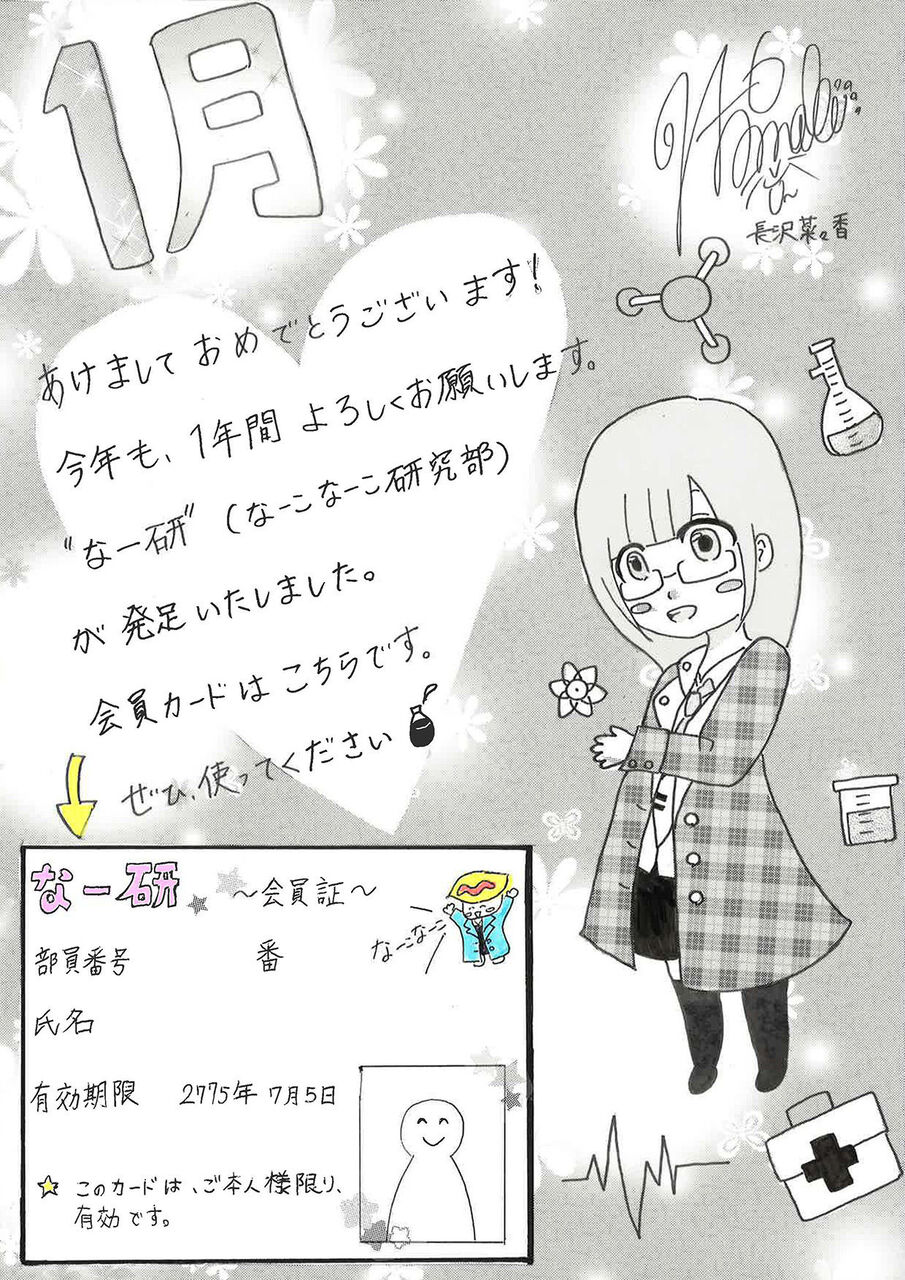 1月
長沢菜々香
あけましておめでとうございます!
今年も、1年間 よろしくお願いします。
"なー研"(なーこなーこ研究部)
が 発足いたしました。
会員カードは こちらです。
ぜひ、使ってください
なー研 ～会員証～
なーこなーこ
部員番号 番
氏名
有効期限 2775年 7月5日
このカードは、ご本人様限り、
有効です。